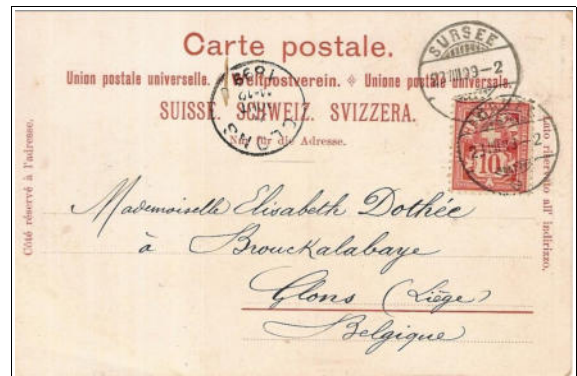 Carte postale.
Union postale universelle. Weltpostverein. Unione postale universale.
SUISSE. SCHWEIZ. SVIZZERA.
Nur für die Adresse.
Côté réservé à l'adresse.
Lato riservato all' indirizzo.
SURSEE
10
GLONS
Mademoiselle Elisabeth Dothée
à Brouckalabaye
Glons (Liège)
Belgique